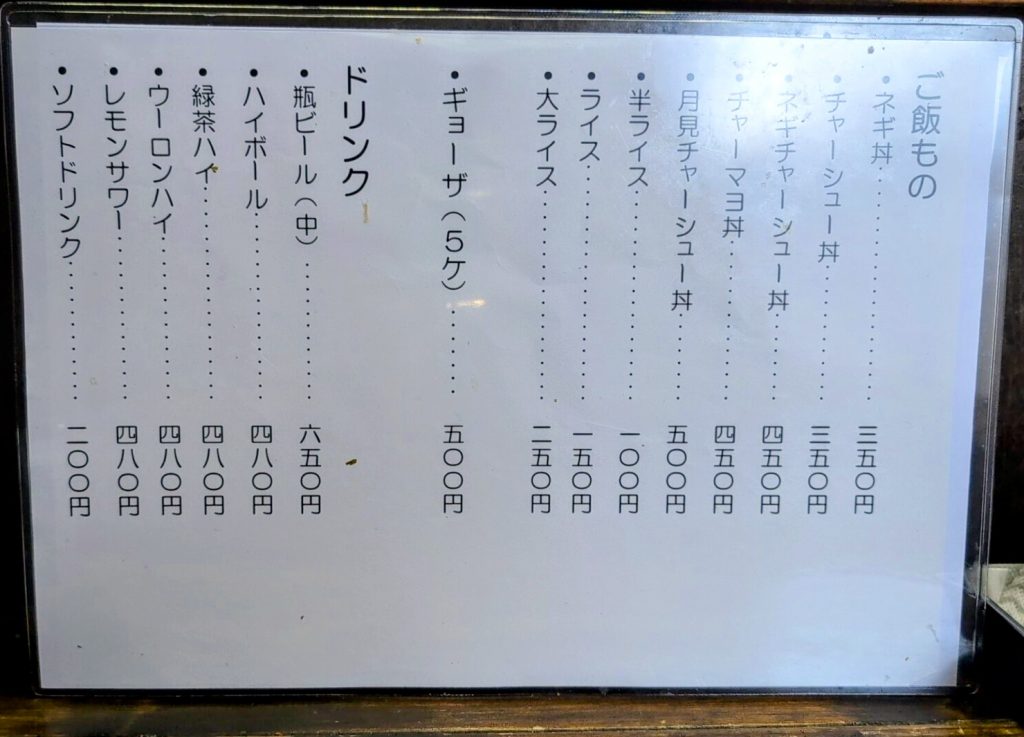 ご飯もの
・ネギ丼…………………三五〇円
・チャーシュー丼…………三五〇円
・ネギチャーシュー丼………四五〇円
・チャーマヨ丼……………四五〇円
・月見チャーシュー丼………五〇〇円
・半ライス………………一〇〇円
・ライス…………………一五〇円
・大ライス………………二五〇円
・ギョーザ(5ケ)…………五〇〇円
ドリンク
・瓶ビール(中)……………六五〇円
・ハイボール………………四八〇円
・緑茶ハイ…………………四八〇円
・ウーロンハイ……………四八〇円
・レモンサワー……………四八〇円
・ソフトドリンク…………二〇〇円